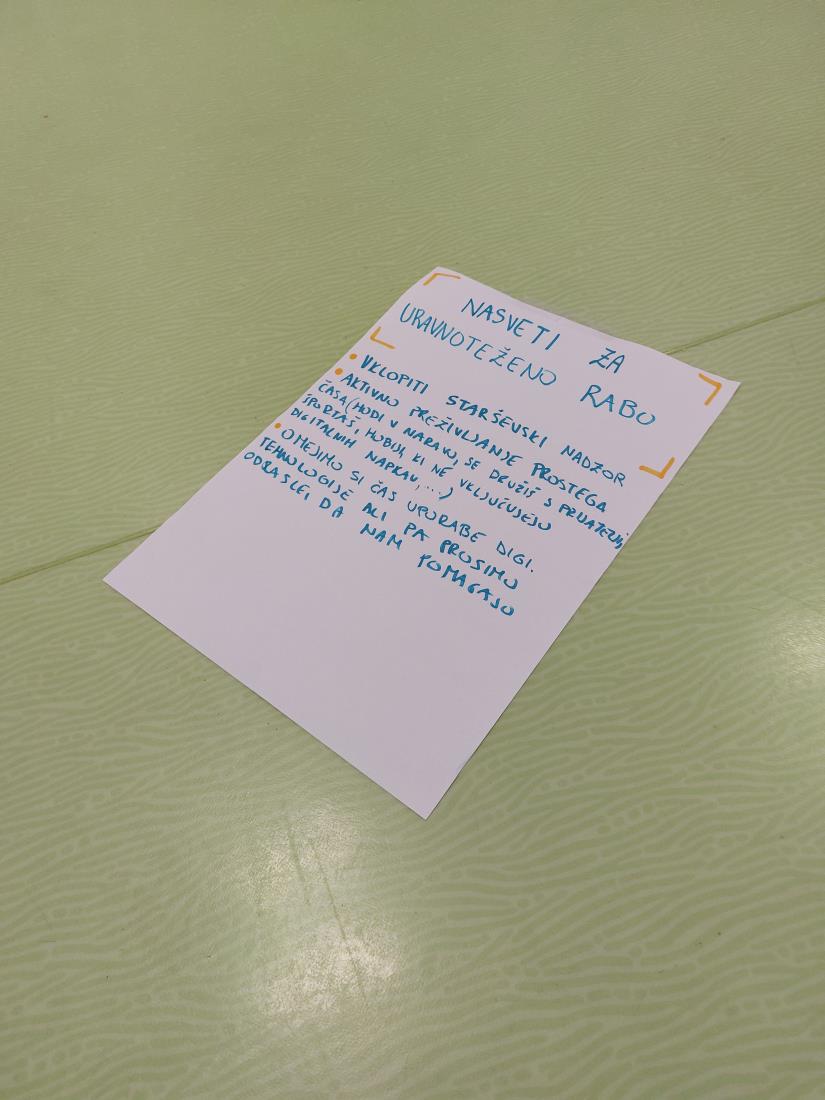 NASVETI ZA
URAVNOTEŽENO RABO
• VKLOPITI STARŠEVSKI NADZOR
• AKTIVNO PREŽIVLJANJE PROSTEGA
ČASA (HODI V NARAVO, SE DRUŽIŠ S PRIJATELJI,
ŠPORTAŠ, HOBIJI, KI NE VKLJUČUJEJO
DIGITALNIH NAPRAV, ...)
• OMEJIMO SI ČAS UPORABE DIGI.
TEHNOLOGIJE ALI PA PROSIMO
ODRASLE, DA NAM POMAGAJO